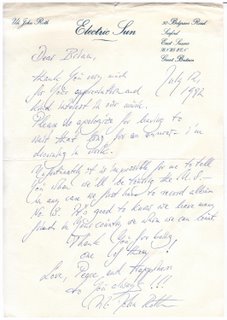 Uli John Roth
Electric Sun
30 Belgrave Road
Seaford
East Sussex
Great Britain
Dear Brian,
July 12,
1982
Thank You very much
for Your appreciation and
kind interest in our music.
Please do apologize for having to
wait that long for an answer. I'm
drowning in work.
Unfortunately it is impossible for me to tell
You when we'll be touring the U.S. –
In any case we first have to record album
No. III. It's good to know we have many
friends in Your country, on whom we can count.
Thank You for being
one of them!
Love, Peace, and Happiness
to You always!!!
Uli John Roth